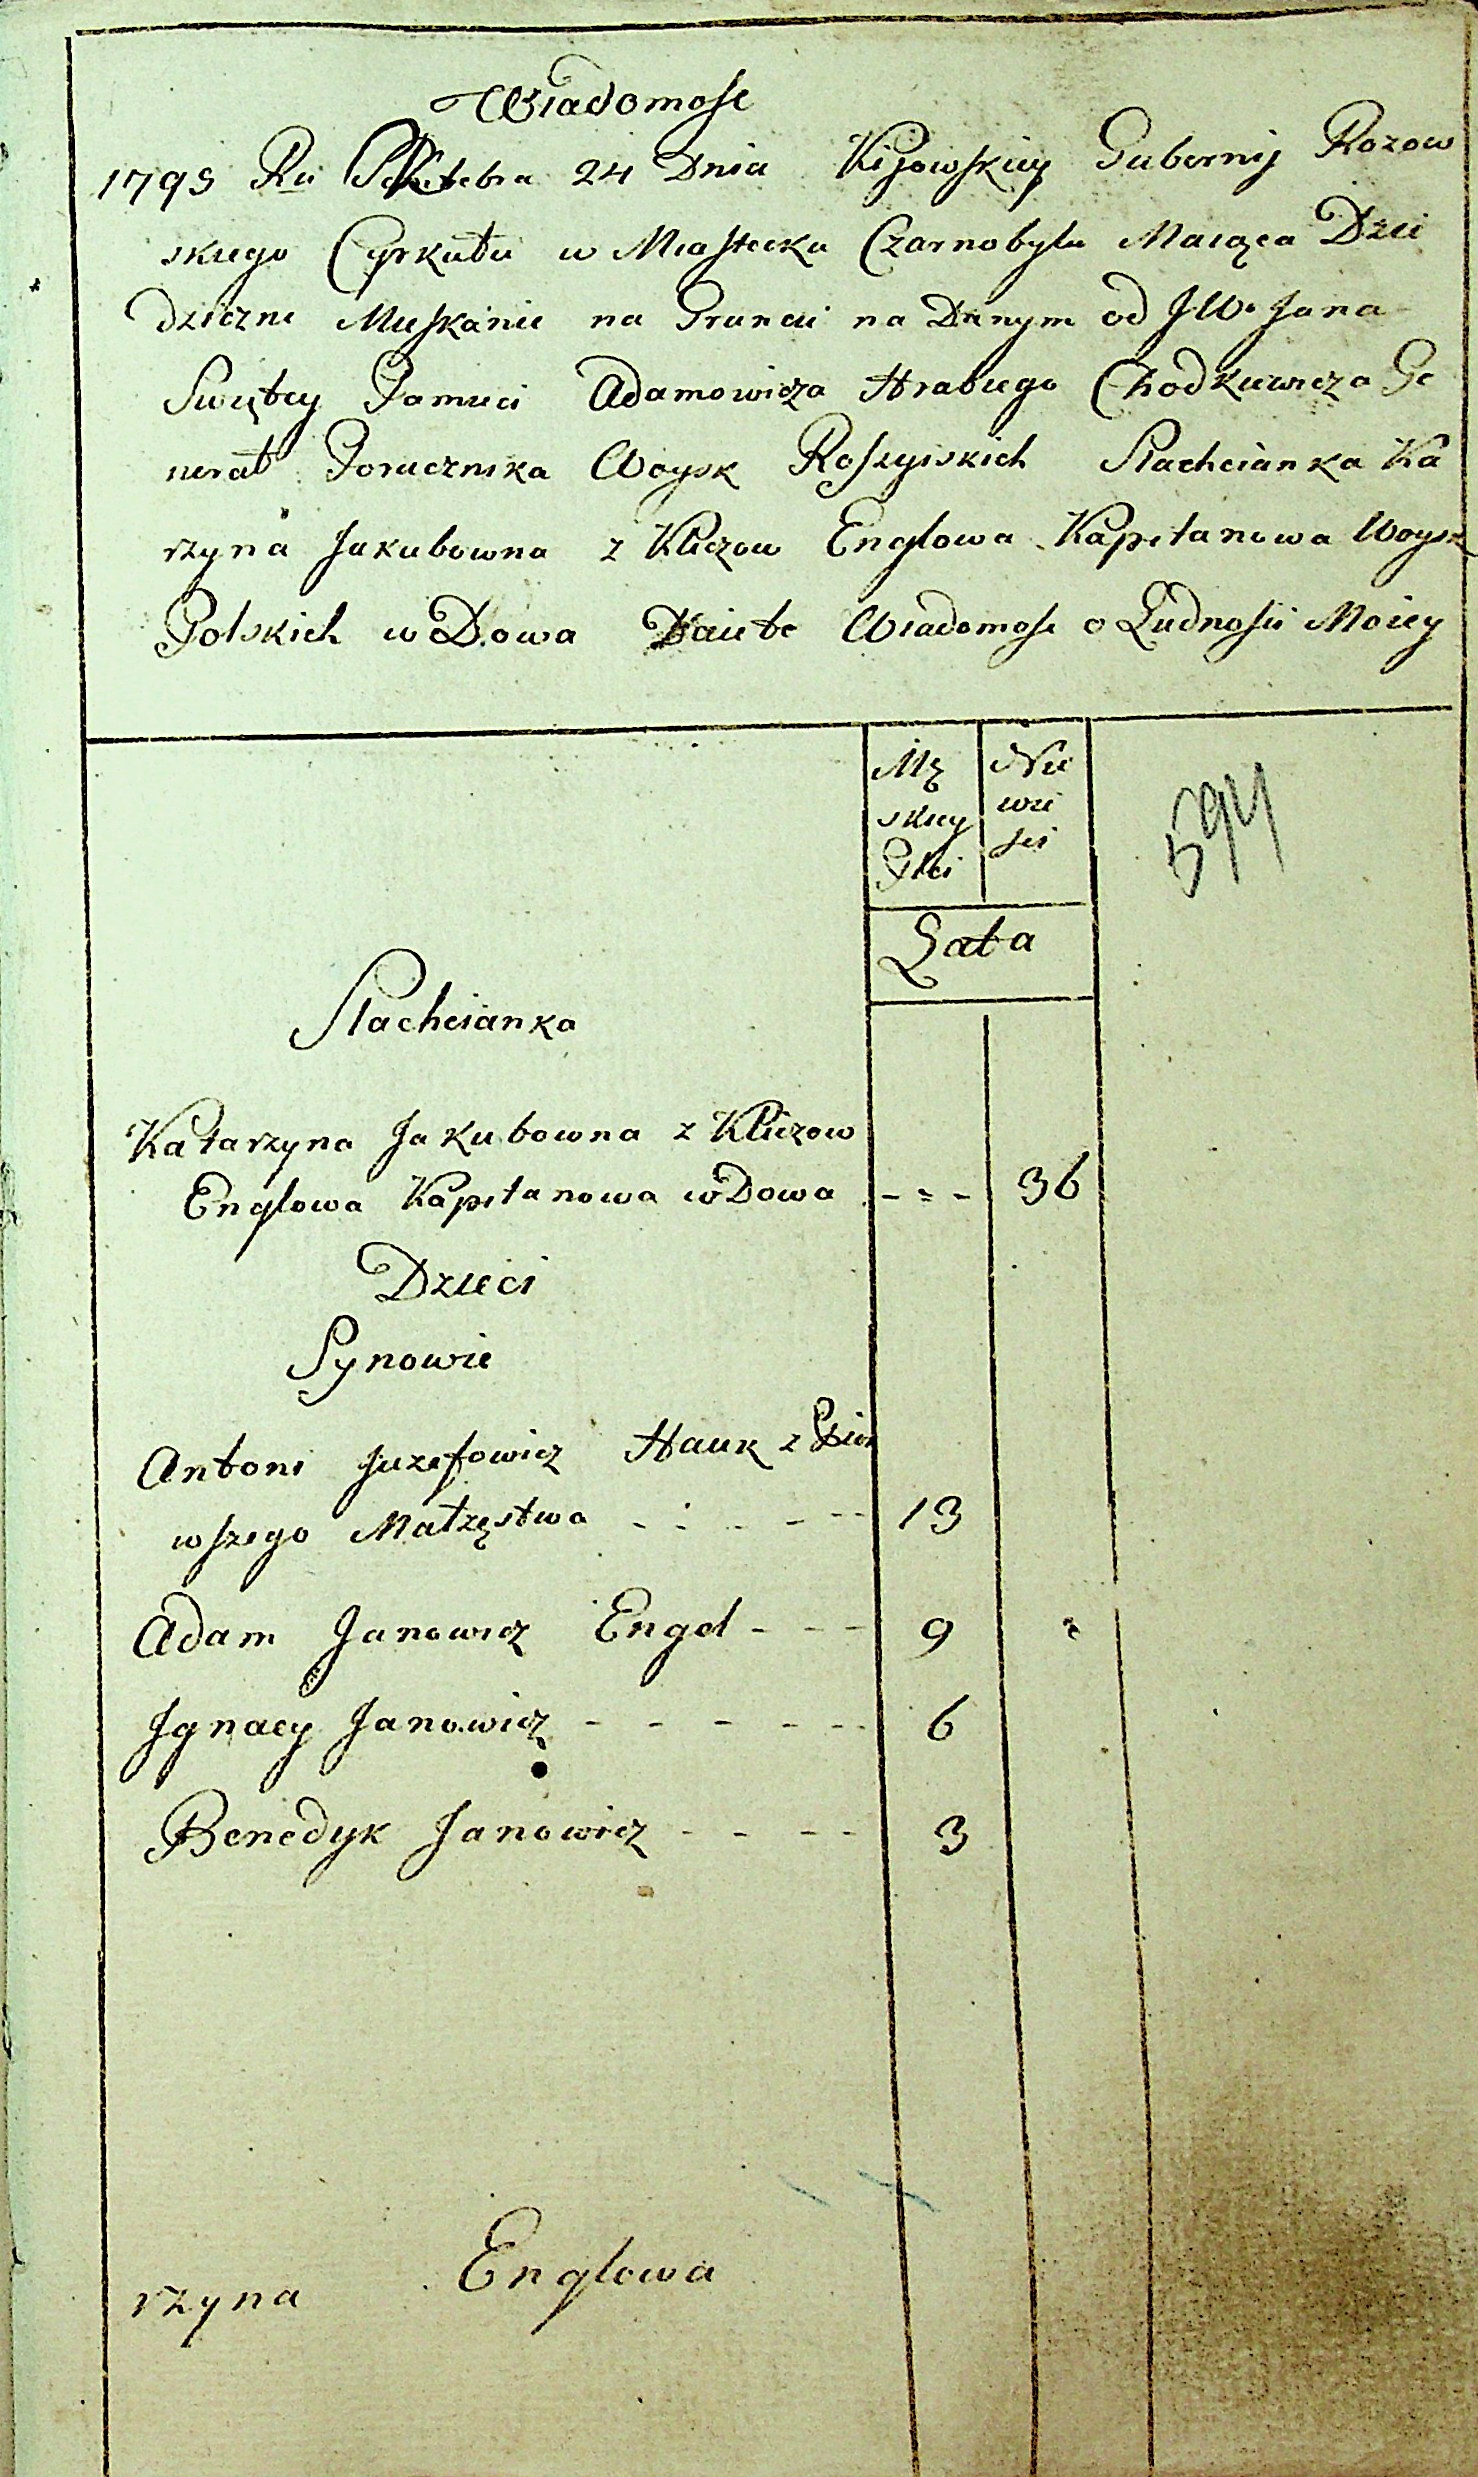 Wiadomosc
1795 Ru Septebra 24 Dnia Kijowskiey Gubernij Rozow
skiego Cyrkułu w Miastecku Czarnobylu Maiąca Dzie
dziczne Mieskanie na Gruncie na Danym od JW. Jana
Swiętey Pamieci Adamowicza Hrabiego Chodkiewicza Ge
nerał Porucznika Woysk Rossyiskich Slachcianka Ka
rzyna Jakubowna z Kliczow Englowa Kapitanowa Woysk
Polskich wDowa Daie te Wiadomosc o Ludnosci Moiey
Mę
skiey
Płci
Nie
wie
sci
594
Lata
Slachcianka
Katarzyna Jakubowna z Kliczow
Englowa Kapitanowa wDowa - - - 36
Dzieci
Synowie
Antoni Juzefowicz Hauk z Pier
wszego Małzęstwa - - - - - 13
Adam Janowicz Engel - - - 9
Jgnacy Janowicz - - - - - - 6
Benedyk Janowicz - - - - 3
rzyna Englowa